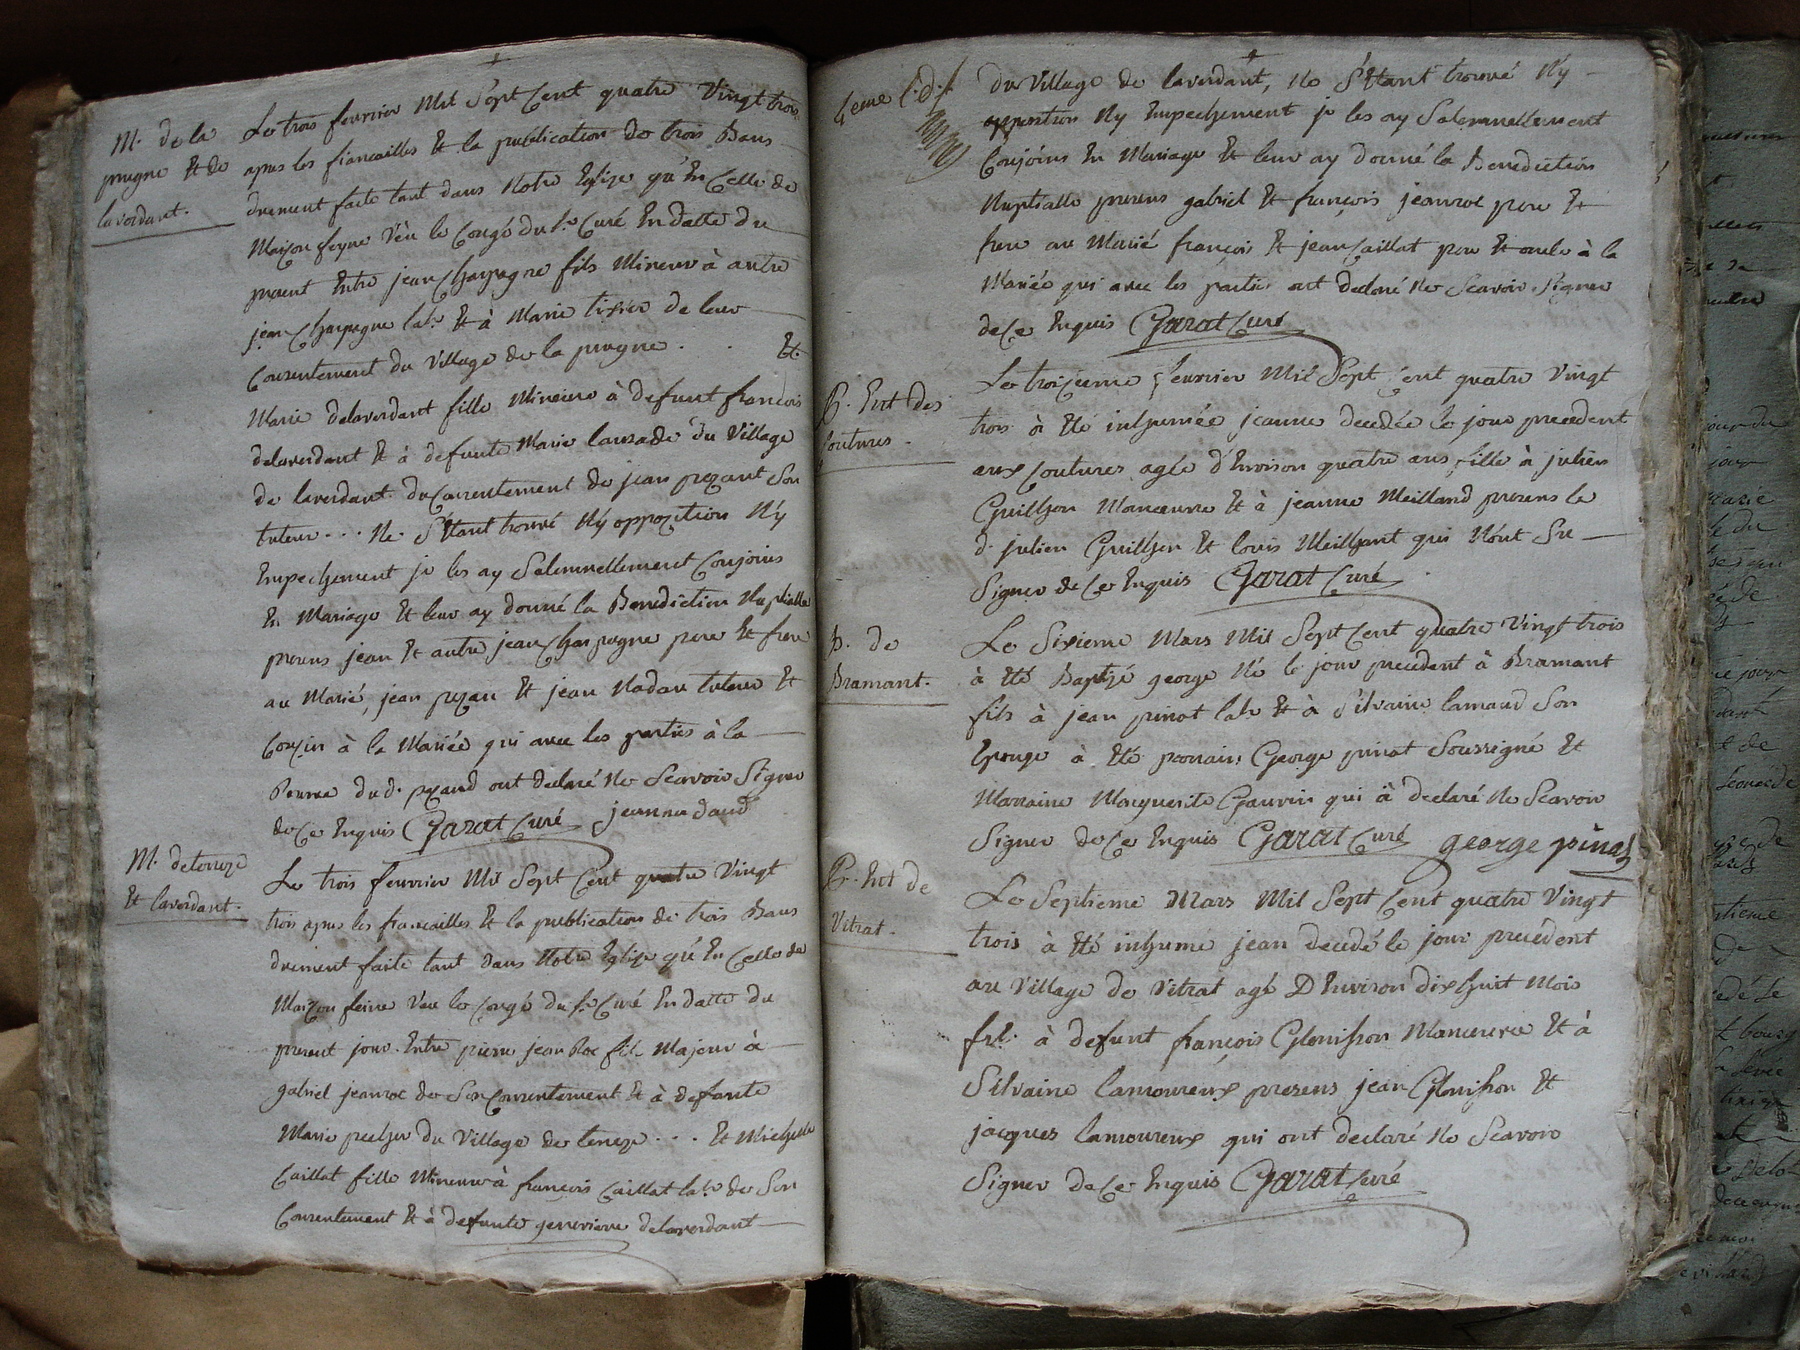 M. de la
prugne Et de
laverdant.
Le trois fevrier Mil Sept Cent quatre Vingt trois
apres les fiancailles Et la publication de trois Bans
drement faite tant dans Notre Eglise qu'En Celle de
Maison feyne Vëu le Congé du Sr. Curé En datte du
present Entre jean Charpagne fils Mineur à autre
jean Charpagne labr. Et à Marie tixier de leur
Consentement du Village de la prugne . . Et.
Marie delaverdant fille Mineure à defunt francois
delaverdant Et à defunte Marie lauzade du Village
de laverdant du Consentement de jean pezant Son
tuteur... Ne S'Etant trouvé N'y oppozition N'y
Empechement je les ay Solemnellement Conjoins
En Mariage Et leur ay donné la Benediction Nuptialle
presens jean Et autre jean Charpagne pere Et frere
au Marié, jean pezan Et jean Nadau tuteur Et
Couzin à la Mariée qui avec les parties à la
Reserve dud. nadaud ont declaré Ne Scavoir Signer
de Ce Enquis Garat Curé jean nadaud
M. deterroze
Et laverdant.
Le trois fevrier Mil Sept Cent quatre Vingt
trois apres les fiancailles Et la publication de trois Bans
drement faite tant dans Notre Eglise qu'En Celle de
Maizon feine Veu le Congé du Sr. Curé En datte du
present jour. Entre pierre jeanroc fils Majeur à
gabriel jeanroc de Son Consentement Et à defunte
Marie pecher du Village de ... Et Michelle
Caillat fille Mineure à francois Caillat labr. de Son
Consentement Et à defunte genevieve delaverdant
4eme
du Village de laverdant, Ne S'Etant trouvé N'y
opposition N'y Empechement je les ay Solemnellement
Conjoins En Mariage Et leur ay donné la Benediction
Nuptialle presens gabriel Et françois jeanroc pere Et
frere au Marié françois Et jean Caillat pere Et oncle à la
Mariée qui avec les parties ont declaré Ne Scavoir Signer
de Ce Enquis Garat Curé
Ent des
Coutures.
Le troizieme fevrier Mil Sept Cent quatre Vingt
trois à Eté inhumée jeanne decedée le jour precedent
aux Coutures agée d'Environ quatre ans, fille à julien
Guilhon Manœuvre Et à jeanne Meilland presens le
d. julien Guilhon Et louis Meilhant qui N'ont Sçu
Signer de Ce Enquis Garat Curé
B. de
Bramant.
Le Sixieme Mars Mil Sept Cent quatre Vingt trois
à Eté Baptizé george Né le jour precedent à Bramant
fils à jean pinot labr Et à Silvaine lamaud Son
Epouze à Eté parrain George pinot Soussigné Et
Marraine Marguerite Gauvin qui à declaré Ne Scavoir
Signer de Ce Enquis Garat Curé george pinot
Ent de
Vitrat.
Le Septieme Mars Mil Sept Cent quatre Vingt
trois à Eté inhumé jean decedé le jour precedent
au Village de Vitrat agé D'Environ dix huit Mois
fils à defunt françois Glenisson Manœuvre Et à
Silvaine lamoureux presens jean Glenisson Et
jacques lamoureux qui ont declaré Ne Scavoir
Signer de Ce Enquis Garat Curé